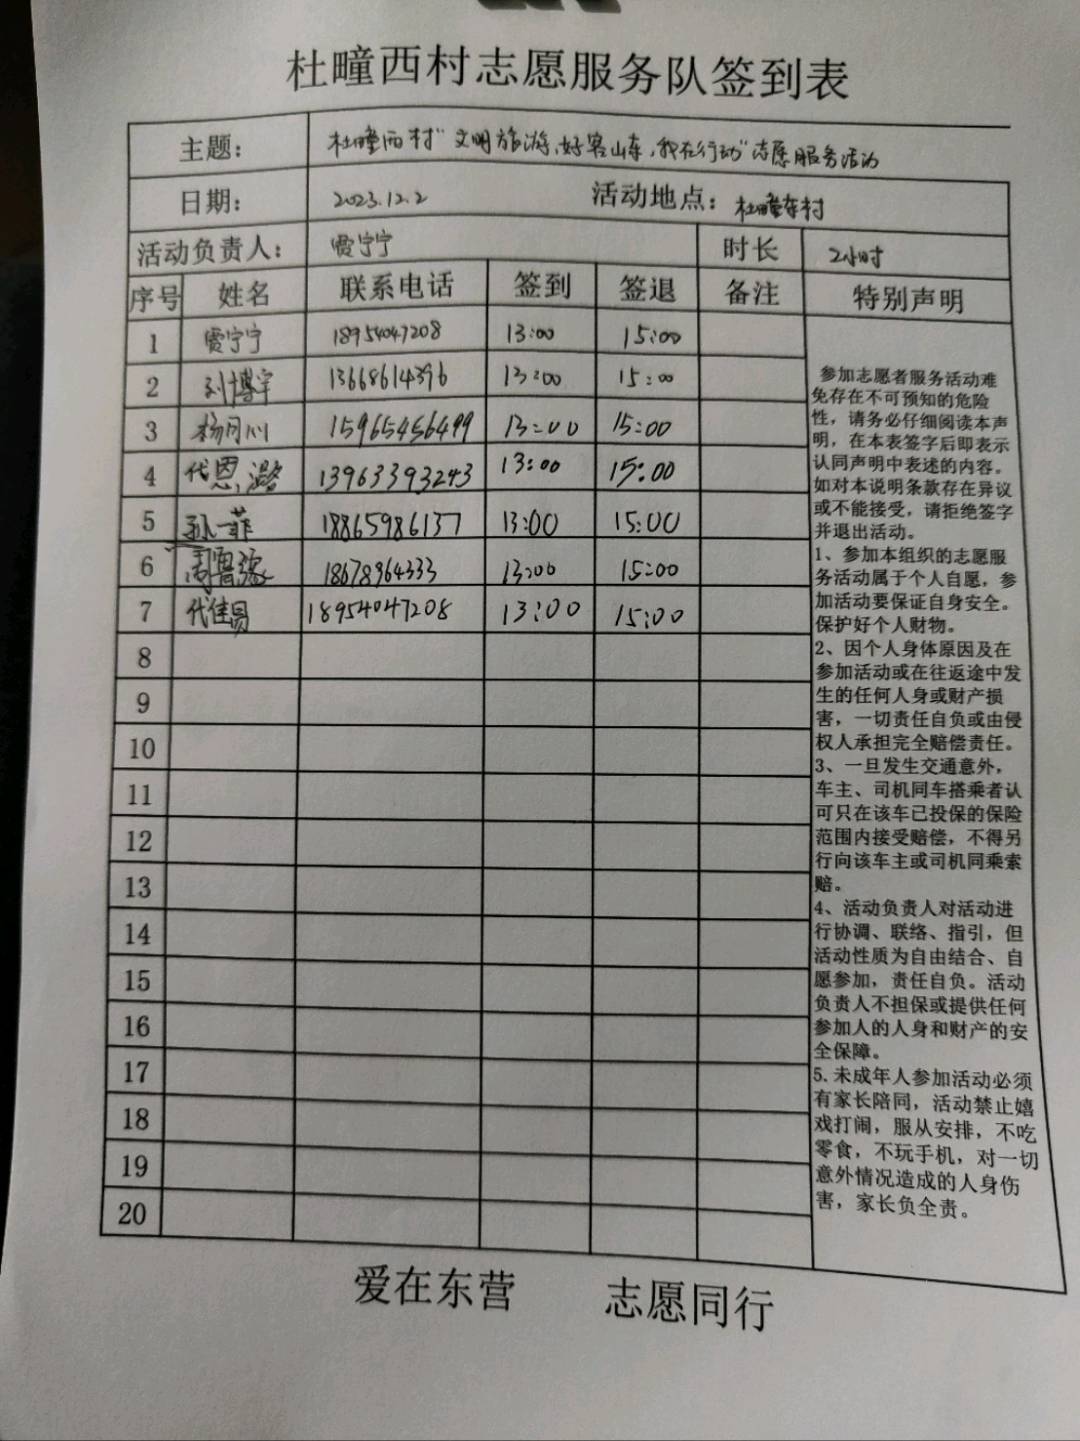 杜疃西村志愿服务队签到表
主题： 杜疃西村"文明旅游、好客山东，我在行动"志愿服务活动
日期： 2023.12.2 活动地点： 杜疃东村
活动负责人： 贾宁宁 时长 2小时
序号 姓名 联系电话 签到 签退 备注 特别声明
1 贾宁宁 18954047208 13:00 15:00
2 刘博宇 13668614396 13:00 15:00
3 15965456499 13:00 15:00
4 代恩潞 13963393243 13:00 15:00
5 孙一菲 18865986137 13:00 15:00
6 18678964333 13:00 15:00
7 代佳昌 18954047208 13:00 15:00
8
9
10
11
12
13
14
15
16
17
18
19
20
参加志愿者服务活动难
免存在不可预知的危险
性，请务必仔细阅读本声
明，在本表签字后即表示
认同声明中表述的内容。
如对本说明条款存在异议
或不能接受，请拒绝签字
并退出活动。
1、参加本组织的志愿服
务活动属于个人自愿，参
加活动要保证自身安全。
保护好个人财物。
2、因个人身体原因及在
参加活动或在往返途中发
生的任何人身或财产损
害，一切责任自负或由侵
权人承担完全赔偿责任。
3、一旦发生交通意外，
车主、司机同车搭乘者认
可只在该车已投保的保险
范围内接受赔偿，不得另
行向该车主或司机同乘索
赔。
4、活动负责人对活动进
行协调、联络、指引，但
活动性质为自由结合、自
愿参加，责任自负。活动
负责人不担保或提供任何
参加人的人身和财产的安
全保障。
5.未成年人参加活动必须
有家长陪同，活动禁止嬉
戏打闹，服从安排，不吃
零食，不玩手机，对一切
意外情况造成的人身伤
害，家长负全责。
爱在东营 志愿同行